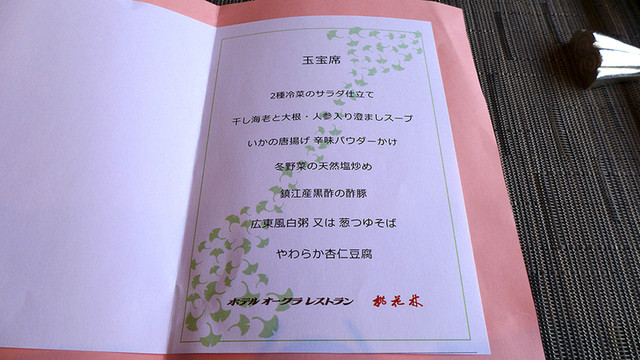 玉宝席
2種冷菜のサラダ仕立て
干し海老と大根・人参入り澄ましスープ
いかの唐揚げ 辛味パウダーかけ
冬野菜の天然塩炒め
鎮江産黒酢の酢豚
広東風白粥 又は 葱つゆそば
やわらか杏仁豆腐
ホテル オークラ レストラン 桃花林